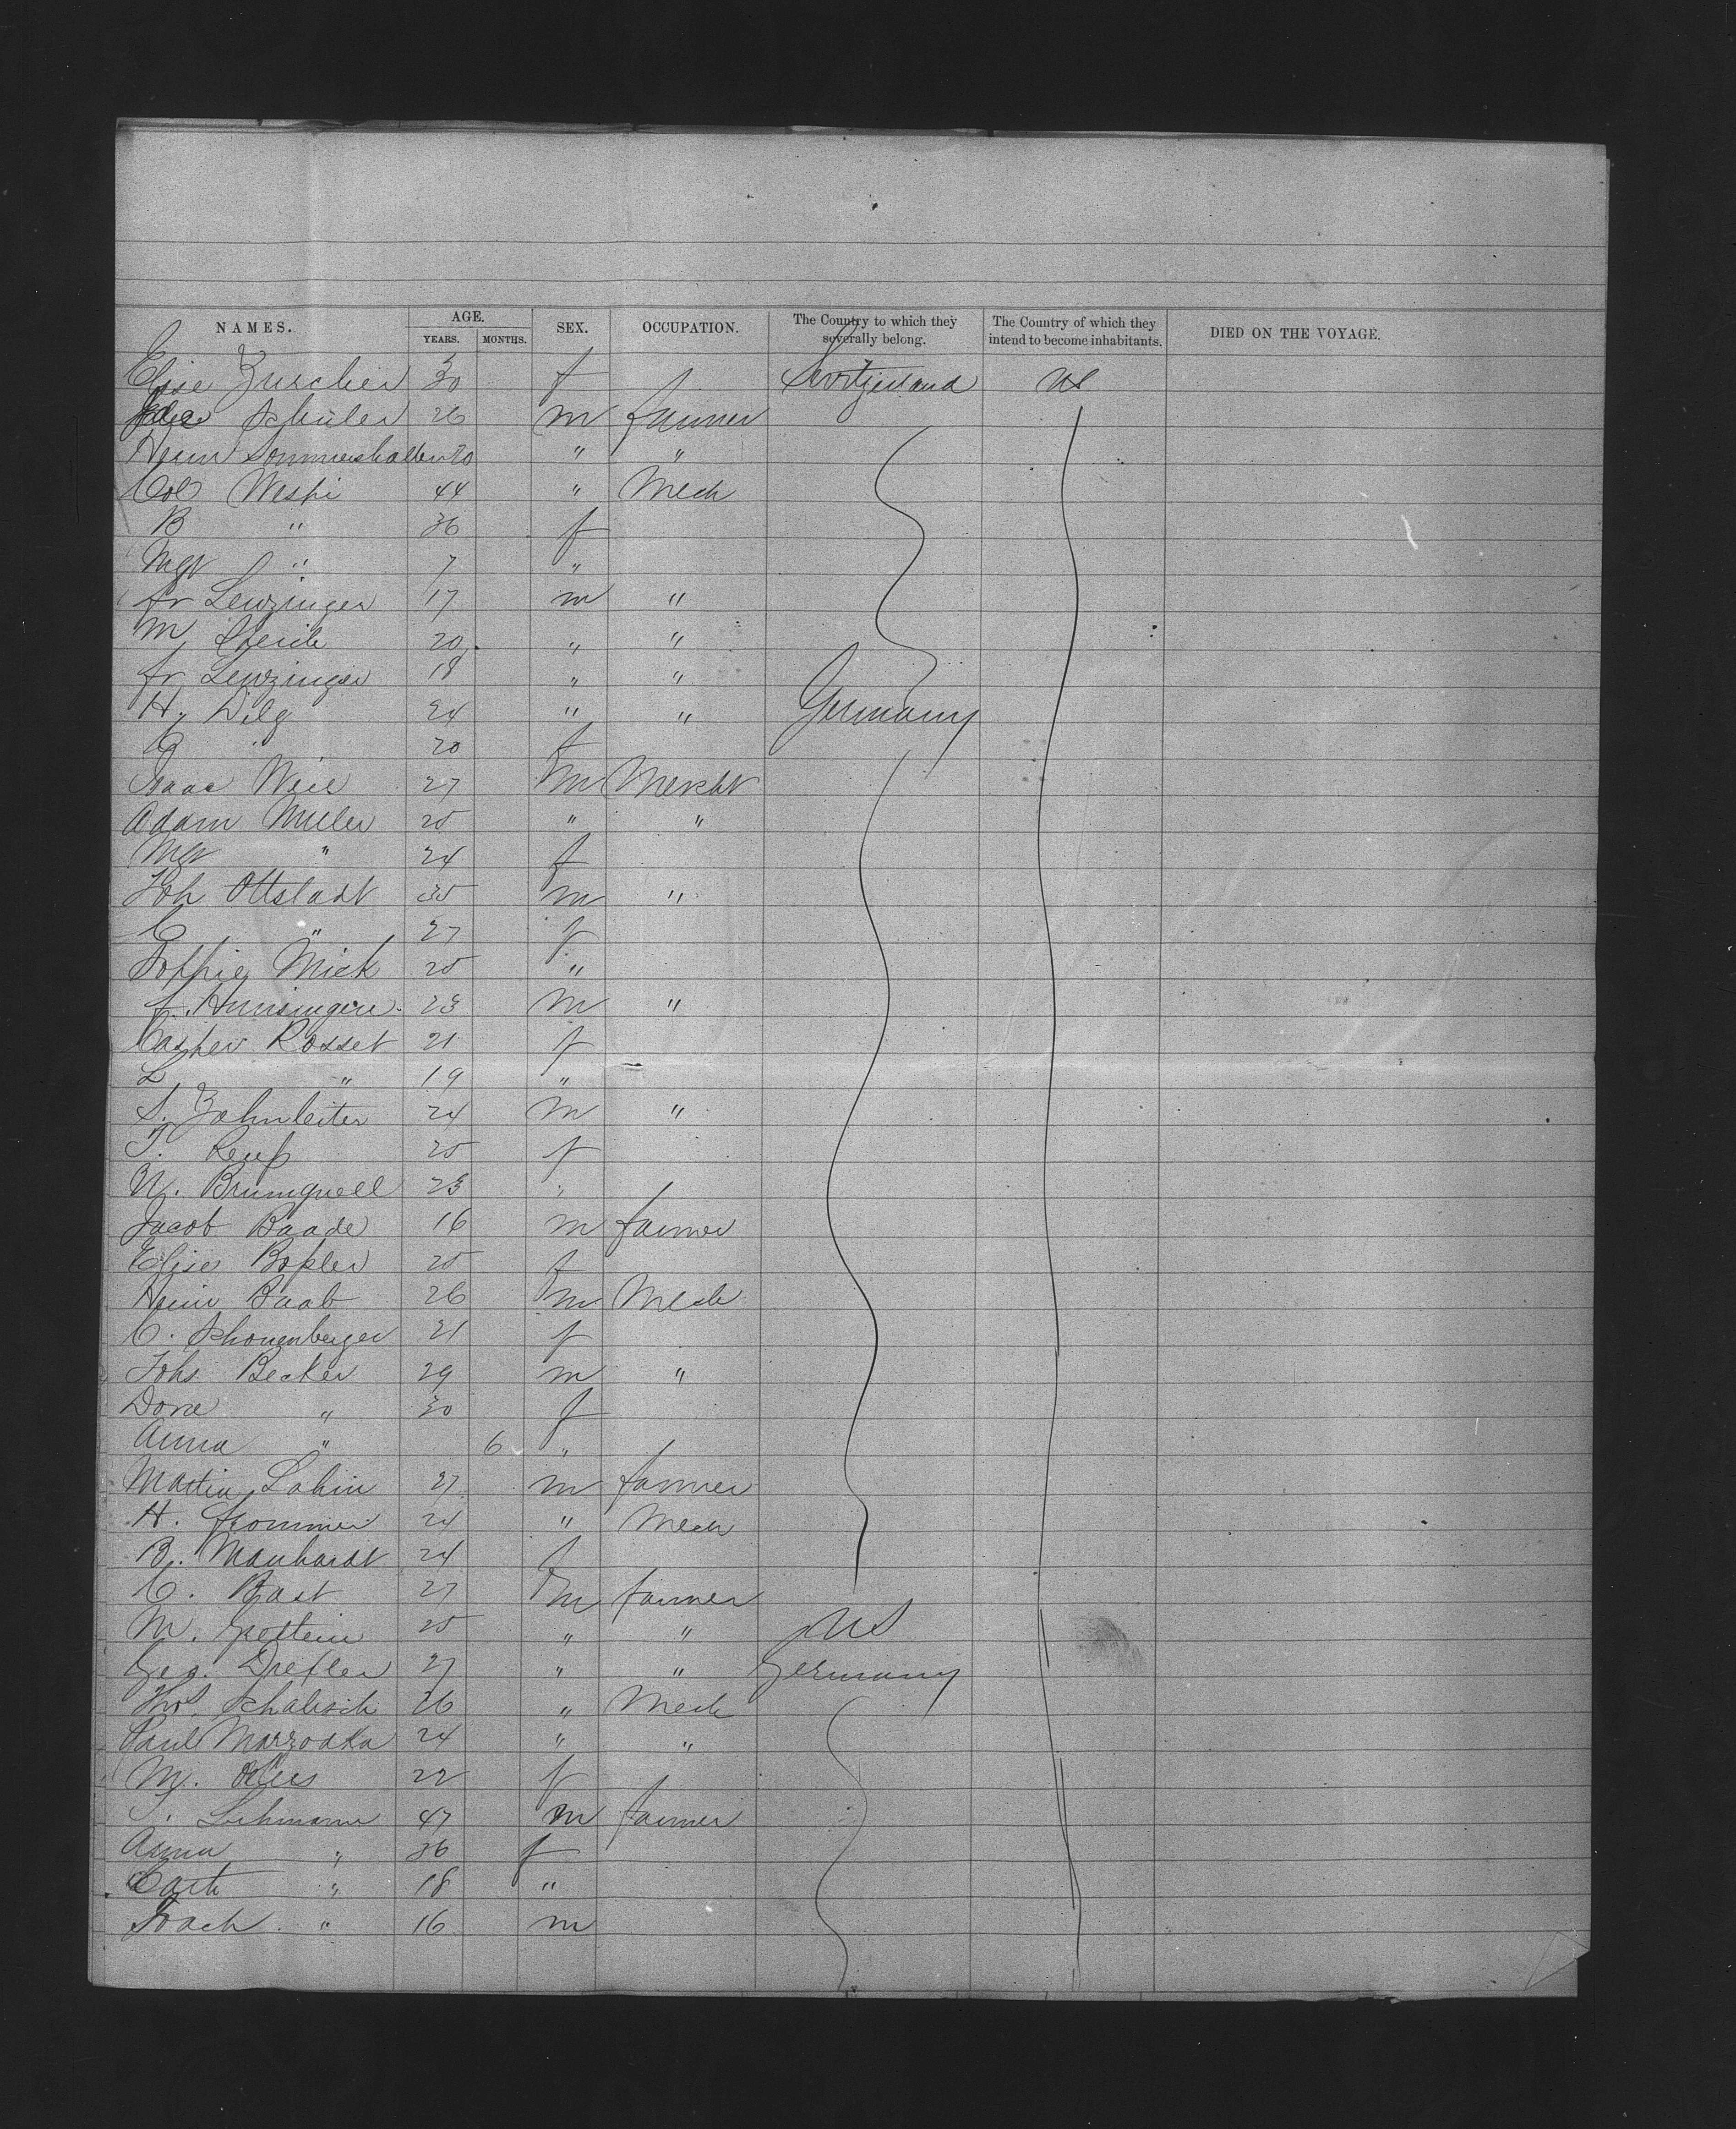 NAMES. AGE. YEARS. MONTHS. SEX. OCCUPATION. The Country to which they severally belong. The Country of which they intend to become inhabitants. DIED ON THE VOYAGE.
Elise Zurcher 30 f Switzerland US
Schuler 26 m farmer
Heinr Sommershalder 20 " "
Wespi 44 " Mech
B " 36 f
Mgr " 7 "
fr Lenzinger 17 m "
M 20 " "
fr Lenzinger 18 " "
H. Dilg 24 " " Germany
C " 20 f
Isaac Weil 27 m Mercht
Adam Muller 25 " "
Mgr " 24 f
Joh Ottstadt 35 m "
C " 27 f
Sophie Mick 25 "
f. Hunsinger 23 m "
Casper Rosset 21 f
L " 19 "
S. Zahnleiter 24 m "
T. 25 f
N. Brumquell 23 "
Jacob Baade 16 m farmer
Elise Bopler 25 f
Heinr Baab 26 m Mech
C. Schonenberger 21 f
Johs Becker 29 m "
Dora " 30 f
Anna " 6 "
Martin Lahin 27 m farmer
H. Frommer 24 " Mech
B. Manhardt 24 f
C. Bast 27 m farmer
M. Epstein 25 " " US
Geo. Drefler 27 " " Germany
Thos. 26 " Mech
Paul Marzodka 24 " "
M. 22 f
T. Lehmann 47 m farmer
Anna " 36 f
Cath " 18 "
Joach " 16 m